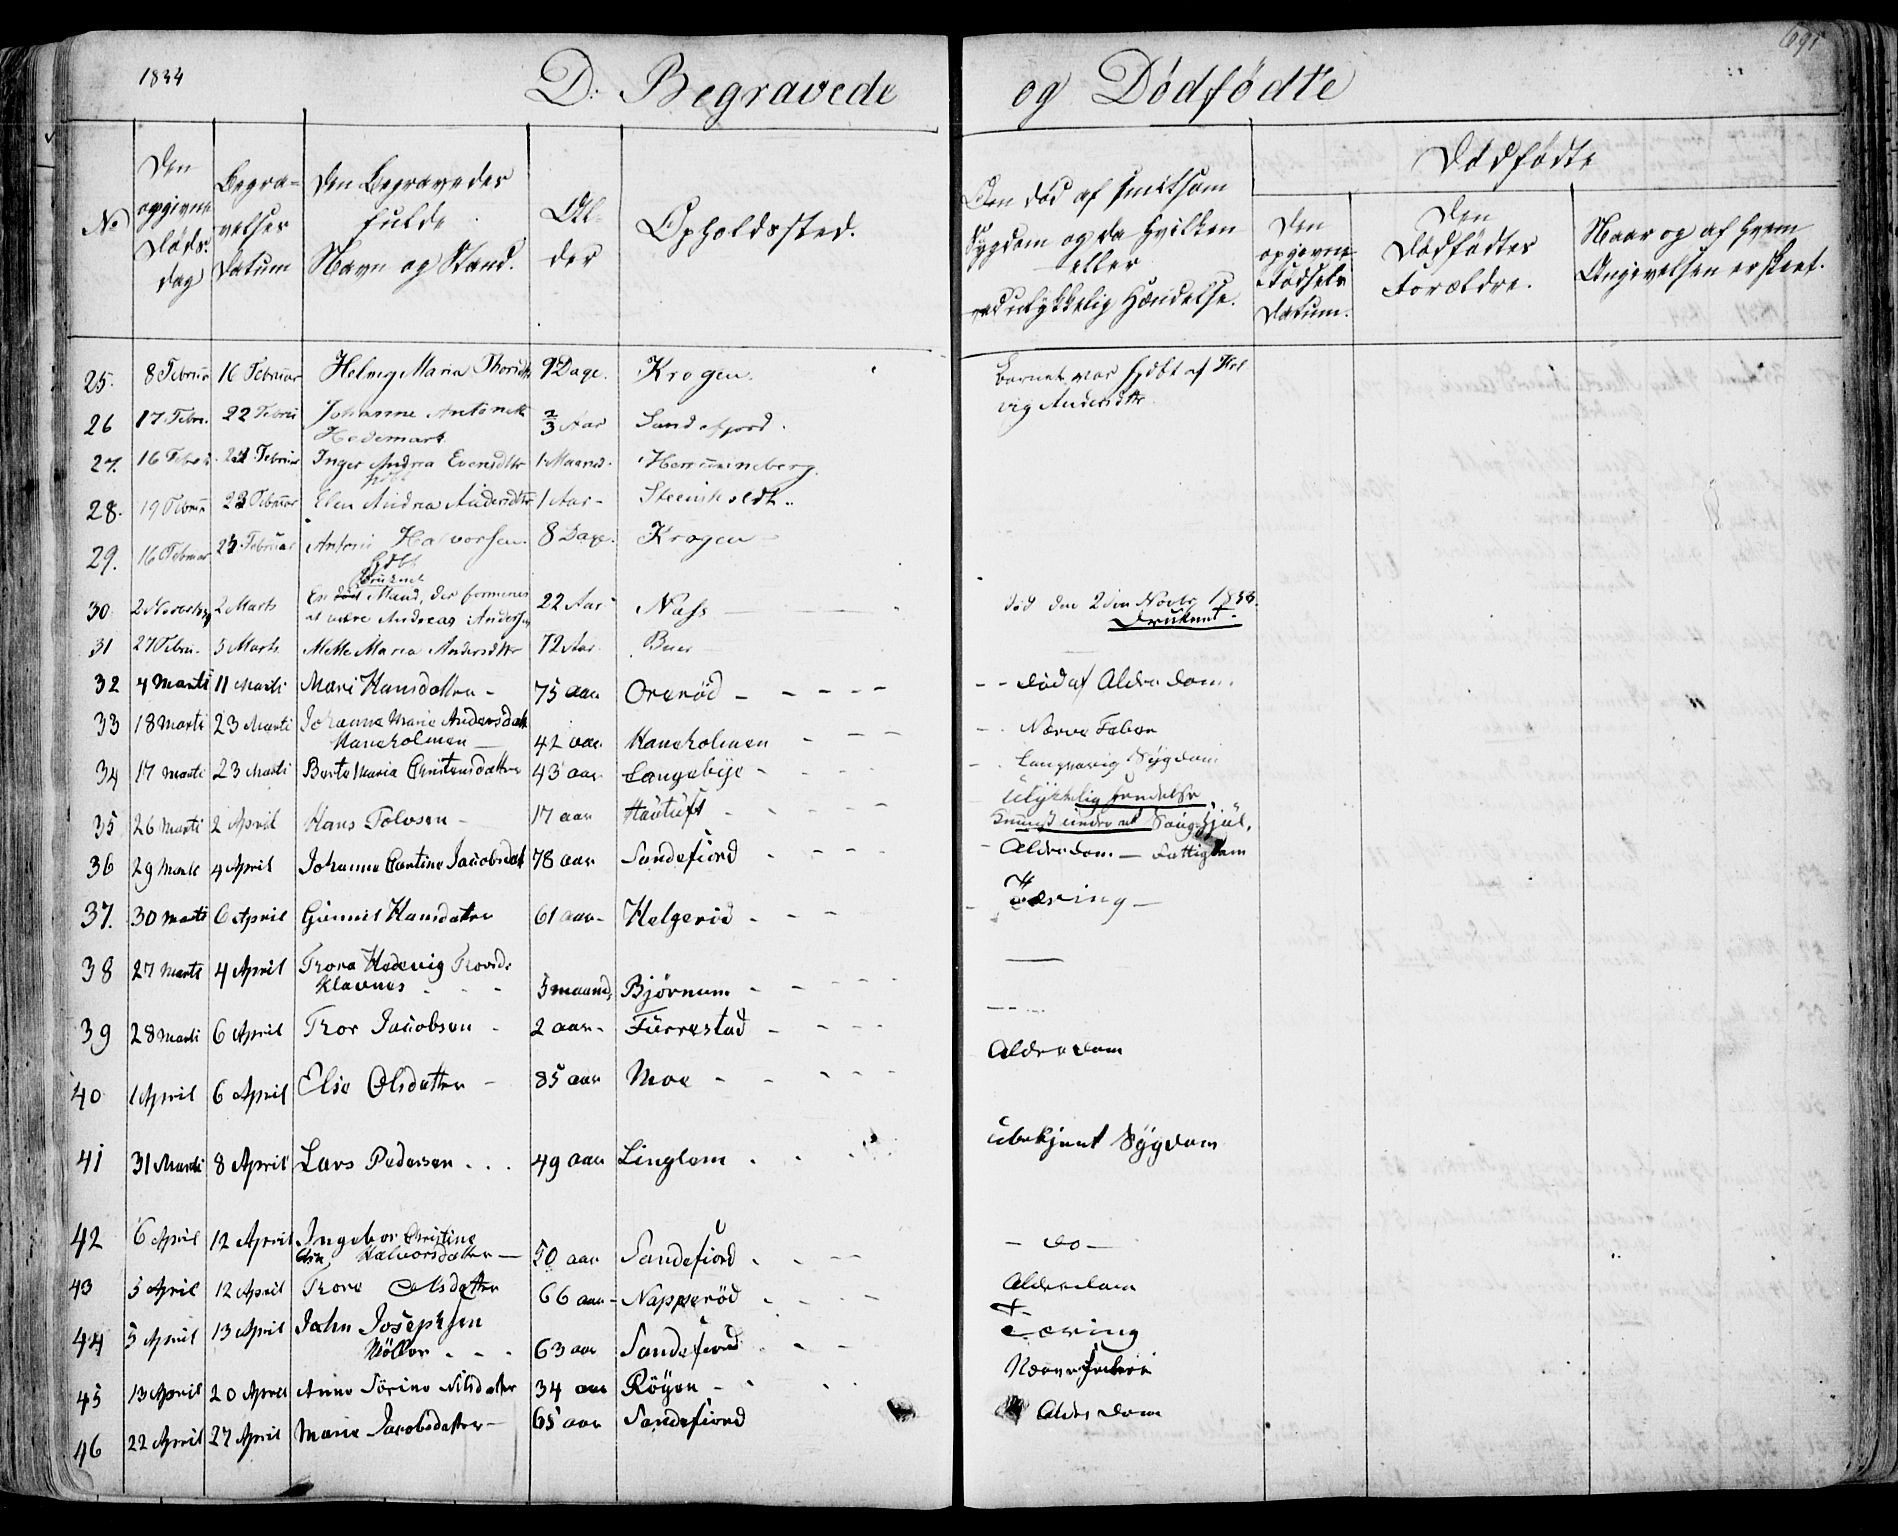 1834
D: Begravede og Dødfødte
691
No
Den opgivne Døds dag
Begravelses Datum
Den Begravedes fulde Navn og Stand.
Alder
Opholdssted.
Om død af smitsom Sygdom og da hvilken eller ved ulykkelig Hændelse.
Dødfødte
Den opgivne Fødsels Datum.
Den Dødfødtes Forældre.
Naar og af hvem Angivelsen er skeet.
25. 8 Februar 16 Februar Helvig Maria 9 Dage. Krogen. Barnet var født af Helvig Andersdtr
26 17 Febru. 22 Februar Johanne Hedemark 2/3 Aar Sandefjord.
27. 16 Februar Inger Andrea Evensdtr 1 Maaned
28. 19 Februar 23 Februar Elen Andrea Andersdtr 1 Aar - Steenholdt..
29. 16 Februar 25 Februar Halvorsen 8 Dage. Krogen
30. 2 November 2 Marts En død Mand, der formenes at være Andreas Andersen 22 Aar Næss død den 2den Novbr 1833. Druknet.
31 27 Febru. 5 Marts Mette Maria Andersdtr 72 Aar
32 4 Marti 11 Marti Mari Hansdatter - 75 aar Orerød - - - - - - død af Alderdom.
33 18 Marti 23 Marti Johanne Marie Andersdatter Haneholmen 42 aar Haneholmen - - - Nerve Feber
34 17 Marti 23 Marti Berte Maria Christensdatter 43 aar Langebye - Langvarig Sygdom
35 26 Marti 2 April Hans Tolvsen - 17 aar Haütüft Ulykkelig Hændelse under et Saug Hjul.
36 29 Marti 4 April Johanne Jacobsdat 78 aar Sandefiord - Alderdom - Fattiglem
37. 30 Marti 6 April Gunnil Hansdatter 61 aar - Helgerød - - - Tæring -
38 27 Marti 4 April Thora Hedevig Thorsdr Klavnes 5 maaned Bjørnum - - - -
39 28 Marti 6 April Thor Jacobsen - 2 aar - Fürrestad - - - -
40 1 April 6 April Else Olsdatter - 85 aar Moe - - - - Alderdom
41 31 Marti 8 April Lars Pedersen . . . 49 aar Linglem . . ubekjent Sygdom
42 6 April 12 April Ingebor Christine Halvorsdatter - 50 aar Sandefiord - do -
43 5 April 12 April Thore Olsdatter 66 aar - Napperød Alderdom
44 5 April 13 April John Josephsen Möller . - - 63 aar Sandefiord - - Tæring
45 13 April 20 April Anne Sørine Nilsdatter 34 aar Røyen - Nerve Feber
46 22 April 27 April Marie Jacobsdatter - 65 aar Sandefiord Alderdom